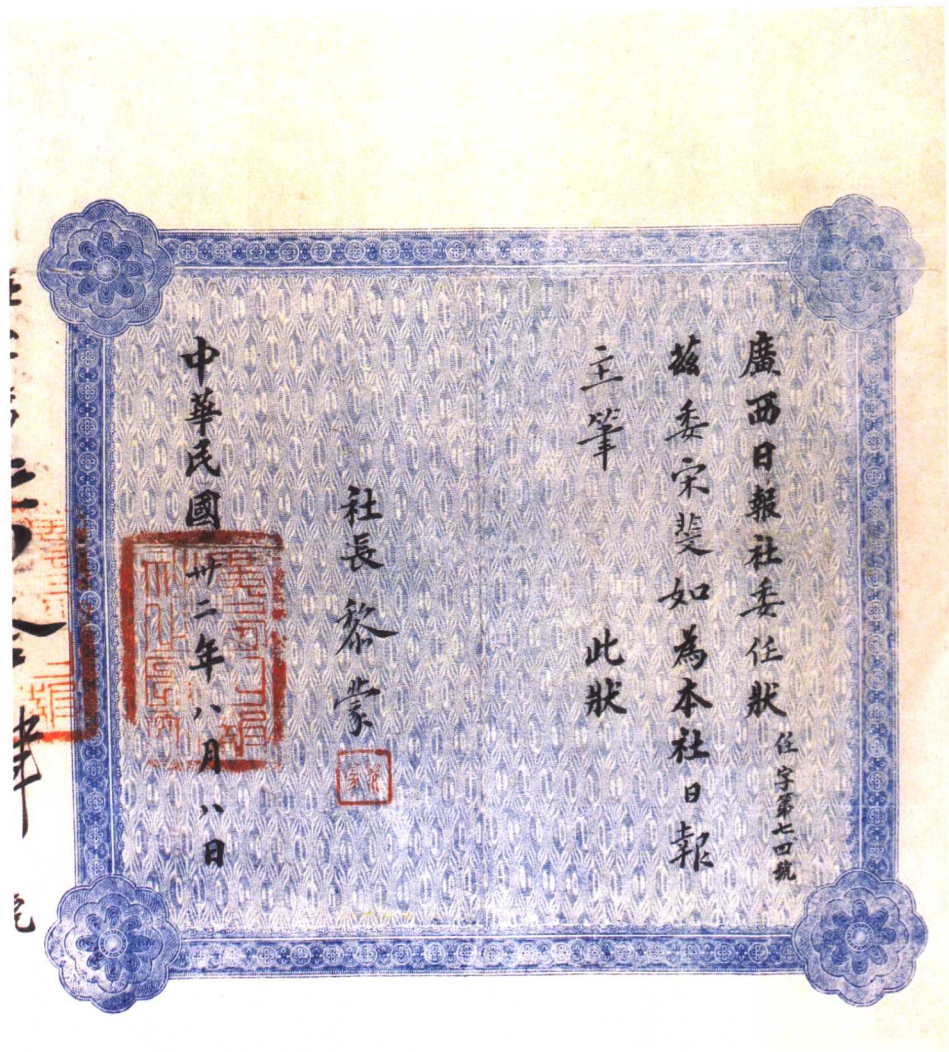 廣西日報社委任狀 任字第七四號
茲委宋斐如為本社日報
主筆 此狀
社長 黎蒙
中華民國卅二年八月八日